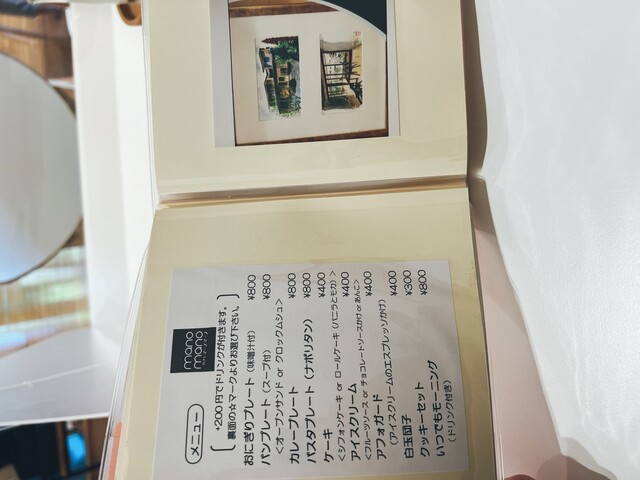 メニュー
mano
mano
+200円でドリンクが付きます。
裏面の☆マークよりお選び下さい。
おにぎりプレート（味噌汁付） ¥800
パンプレート（スープ付） ¥800
＜オープンサンド or クロックムシュ＞
カレープレート ¥800
パスタプレート（ナポリタン） ¥800
ケーキ ¥400
＜シフォンケーキ or ロールケーキ（バニラとモカ）＞
アイスクリーム ¥400
＜フルーツソース or チョコレートソースかけ or あんこ＞ ¥400
アフォガード
（アイスクリームのエスプレッソかけ）
白玉団子 ¥400
クッキーセット ¥300
いつでもモーニング ¥800
（ドリンク付き）